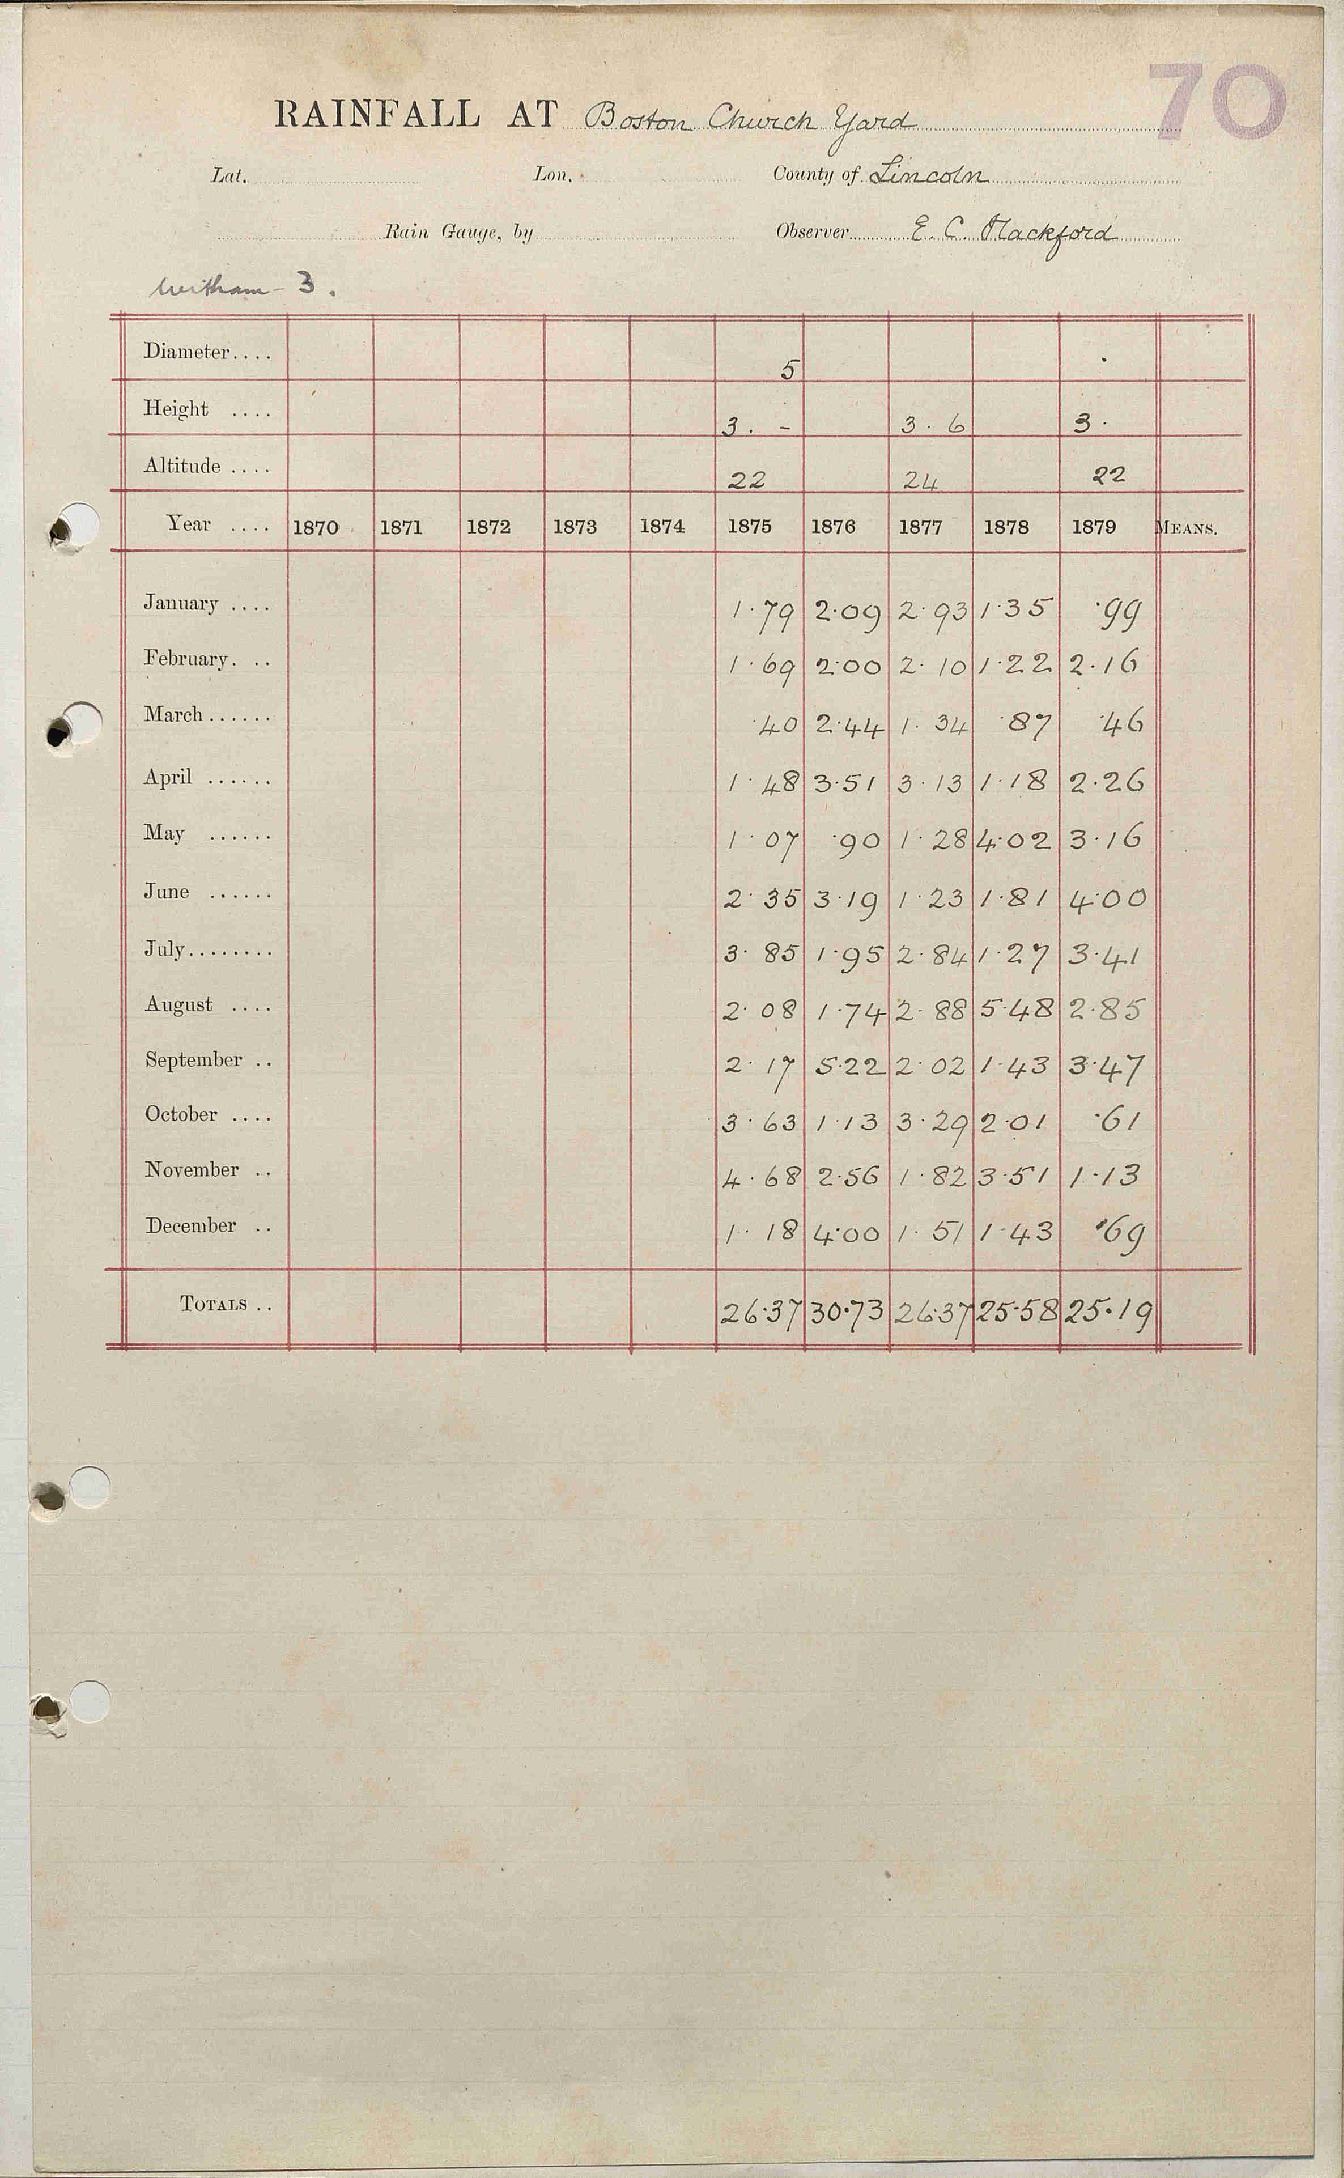 70
RAINFALL AT Boston Church Yard
Lat. Lon. County of Lincoln
Rain Gauge, by Observer E. C. Hackford
Witham - 3.
Diameter.... 5
Height .... 3. - 3. 6 3.
Altitude .... 22 24 22
Year .... 1870 1871 1872 1873 1874 1875 1876 1877 1878 1879 MEANS.
January .... 1.79 2.09 2.93 1.35 .99
February. .. 1.69 2.00 2.10 1.22 2.16
March...... .40 2.44 1.34 .87 .46
April ...... 1.48 3.51 3.13 1.18 2.26
May ...... 1.07 .90 1.28 4.02 3.16
June ...... 2.35 3.19 1.23 1.81 4.00
July........ 3.85 1.95 2.84 1.27 3.41
August .... 2.08 1.74 2.88 5.48 2.85
September .. 2.17 5.22 2.02 1.43 3.47
October .... 3.63 1.13 3.29 2.01 .61
November .. 4.68 2.56 1.82 3.51 1.13
December .. 1.18 4.00 1.51 1.43 .69
TOTALS .. 26.37 30.73 26.37 25.58 25.19